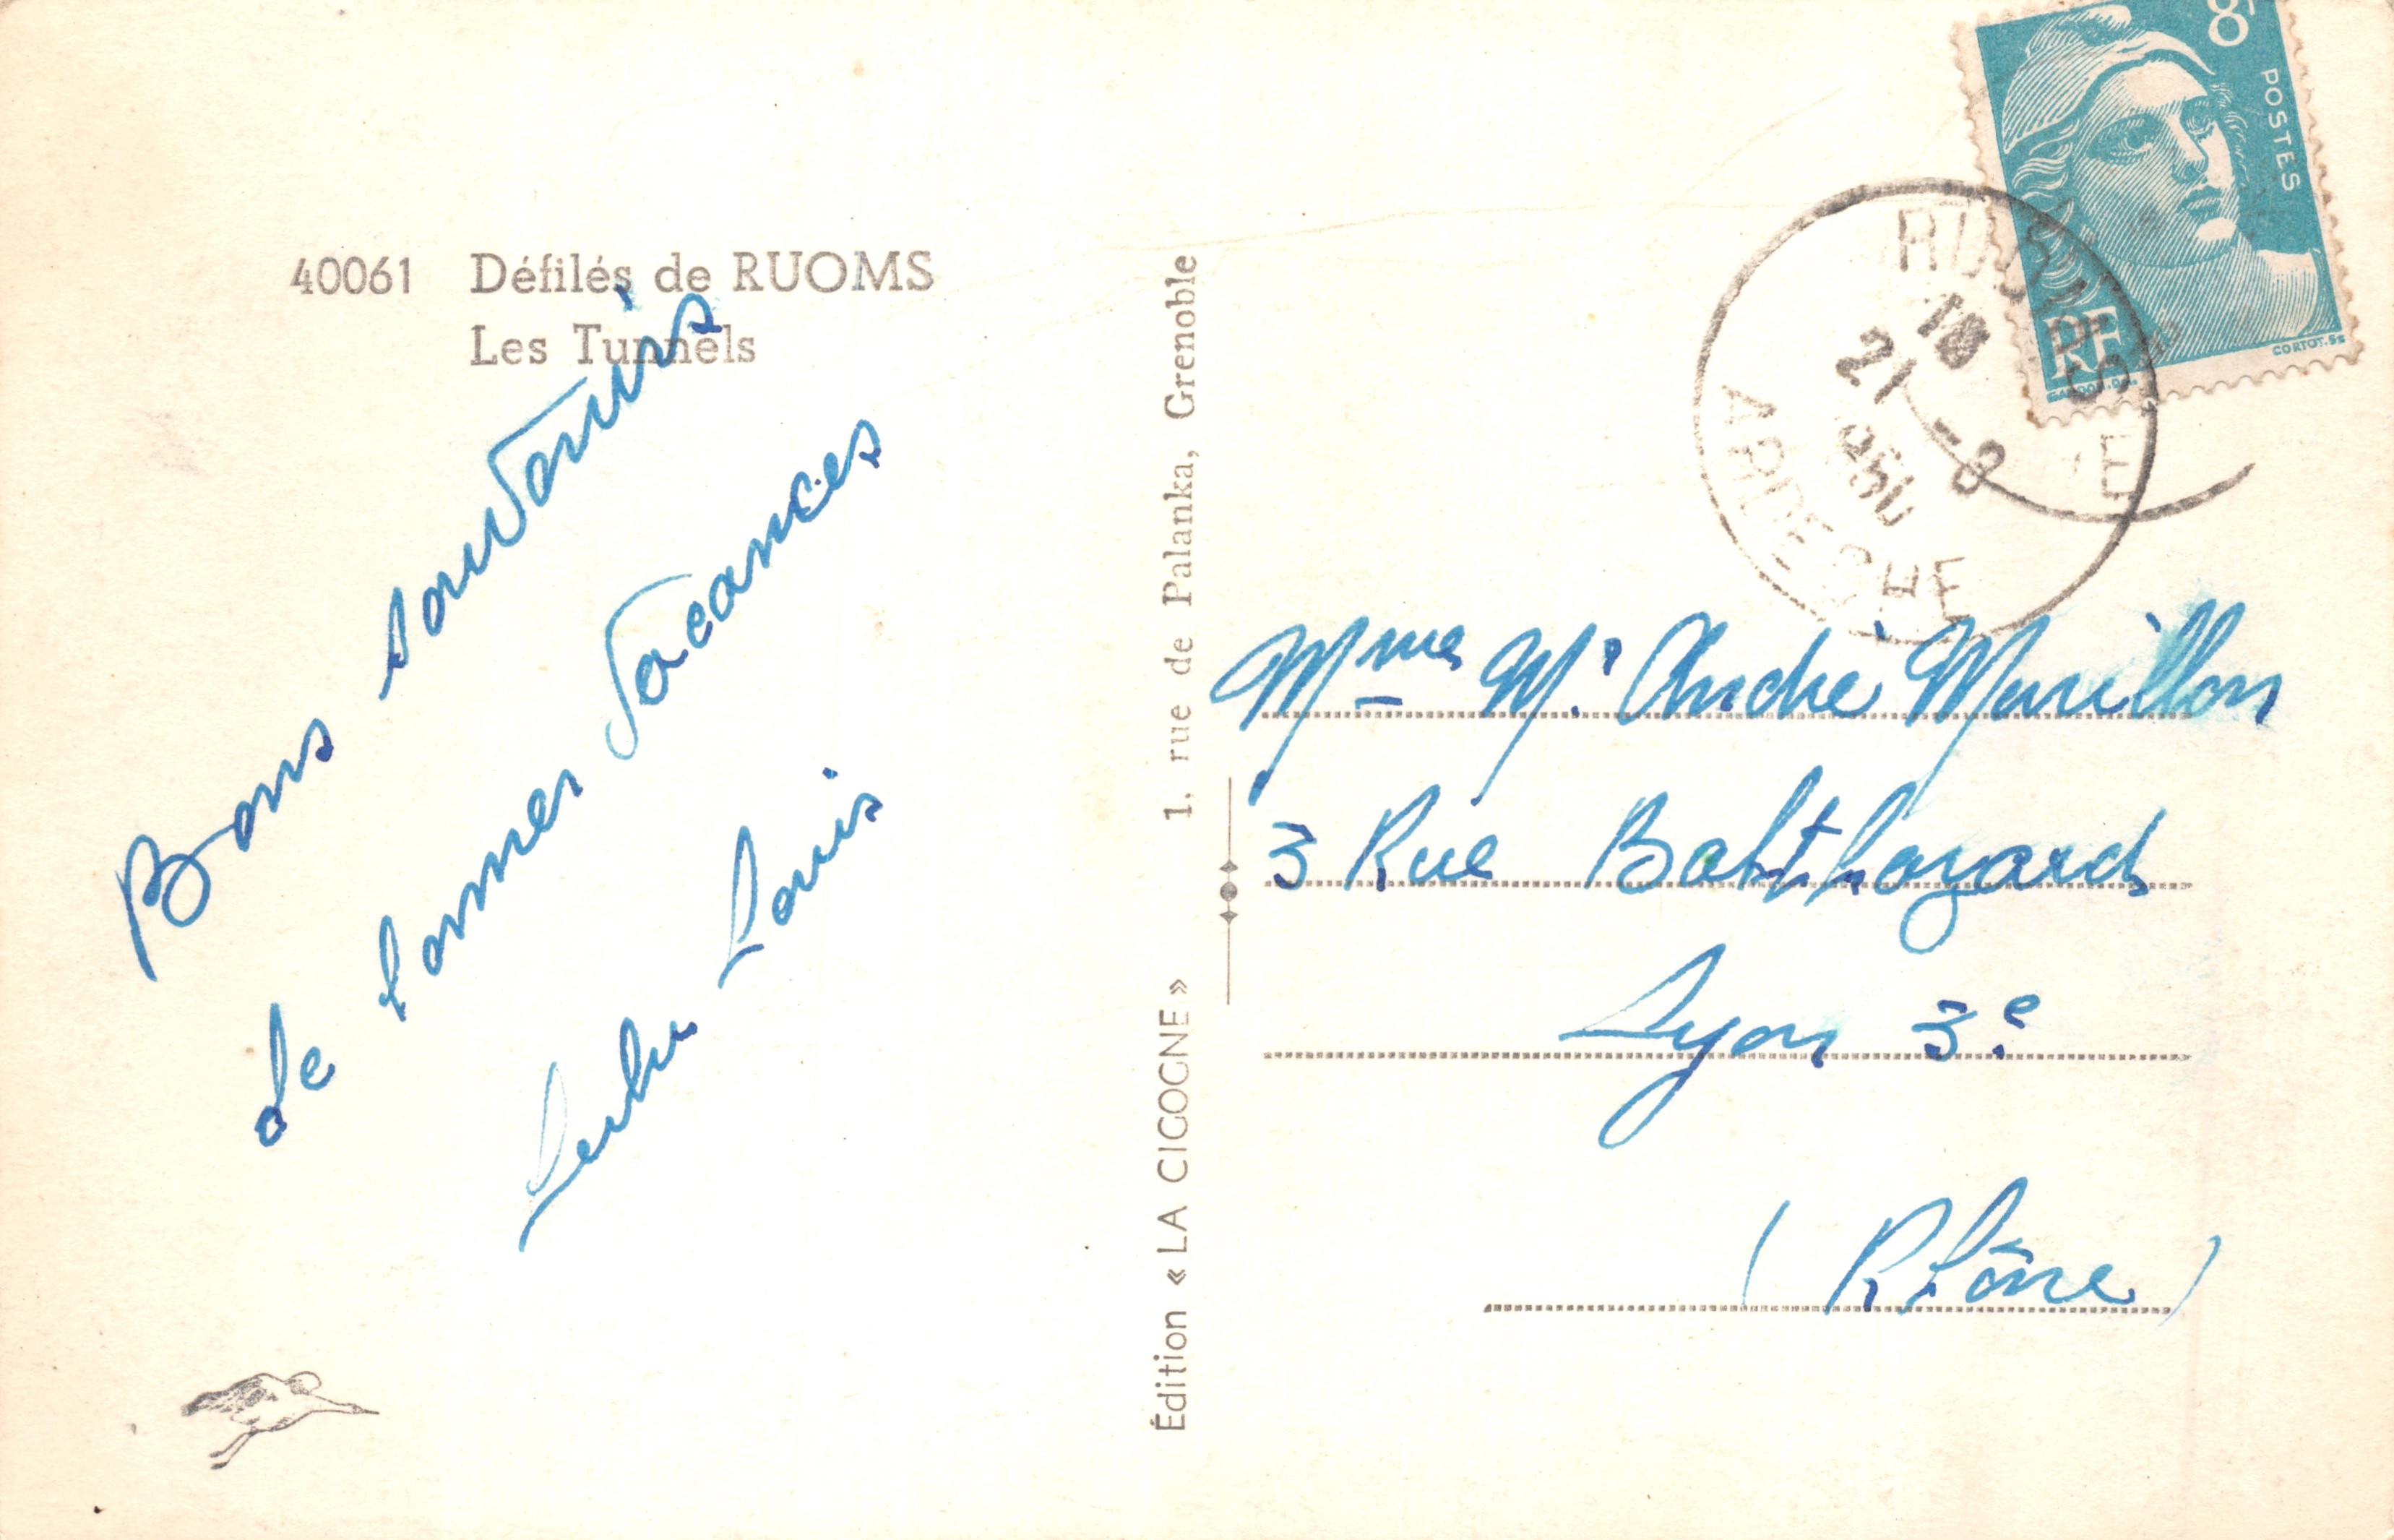 40061 Défilés de RUOMS
Les Tunnels
Bons souvenirs
de bonnes vacances
Louis
Édition « LA CICOGNE » 1, rue de Palanka, Grenoble
8
POSTES
RF
CORTOT. SC
GANDON. DEL.
RUOMS
18
21 -8
1950
ARDECHE
Mme Mr André Marillon
3 Rue Balthazard
Lyon 3e
(Rhône)